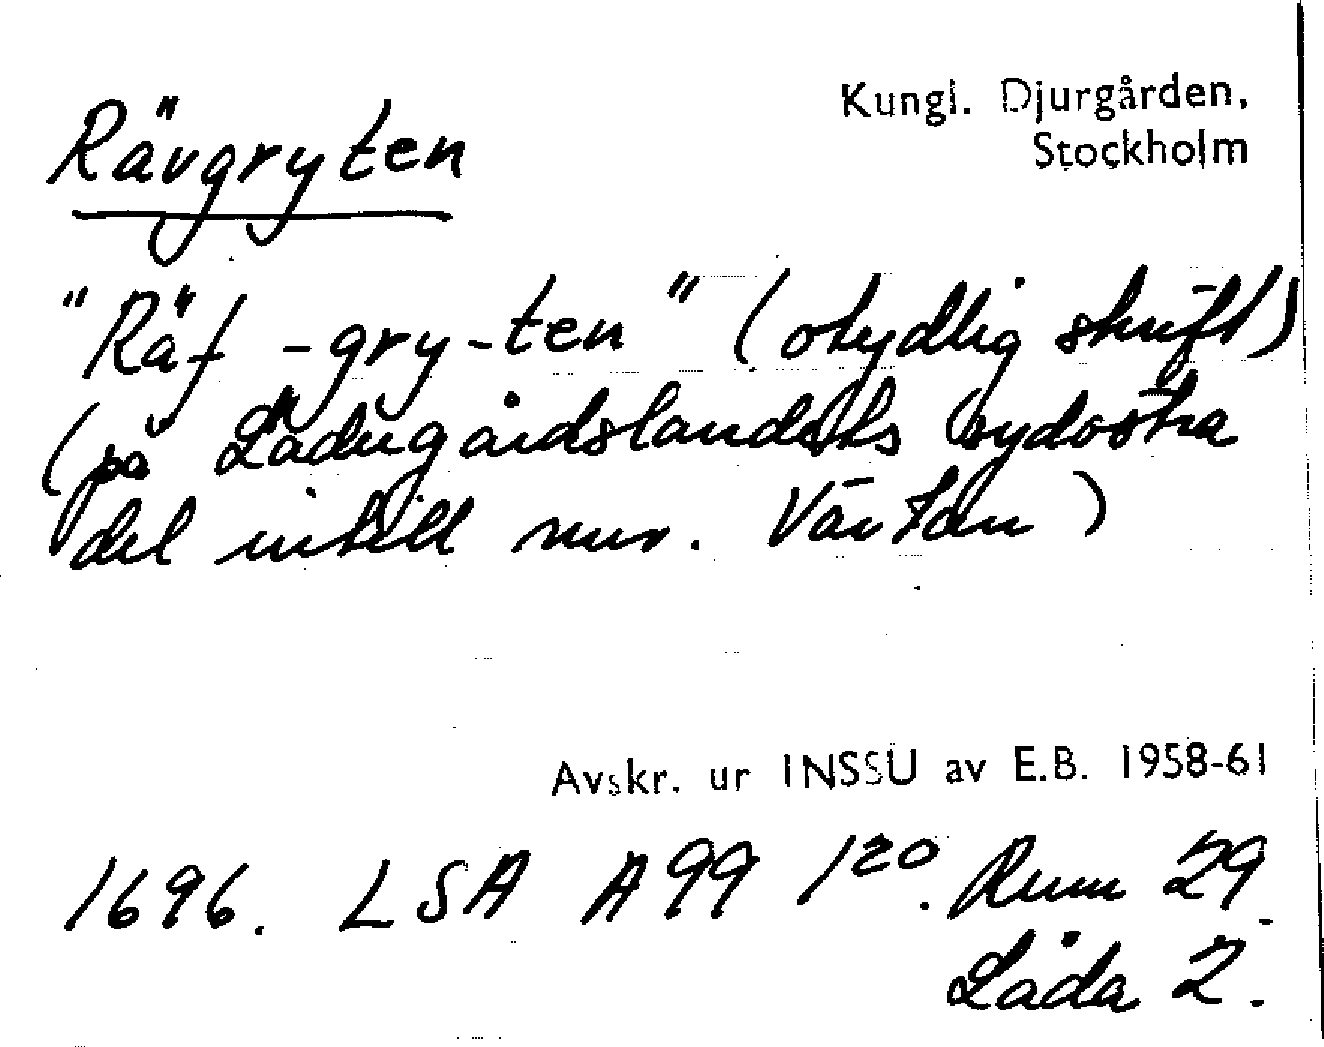 Kungl. Djurgården,
Stockholm
Rävgryten
"Räf -gry-ten" (otydlig skrift)
(på Ladugårdslandets sydöstra
del intill nuv. Värtan)
Avskr. ur INSSU av E.B. 1958-61
1696. LSA A99 1:20. Rum 29.
Låda 2.